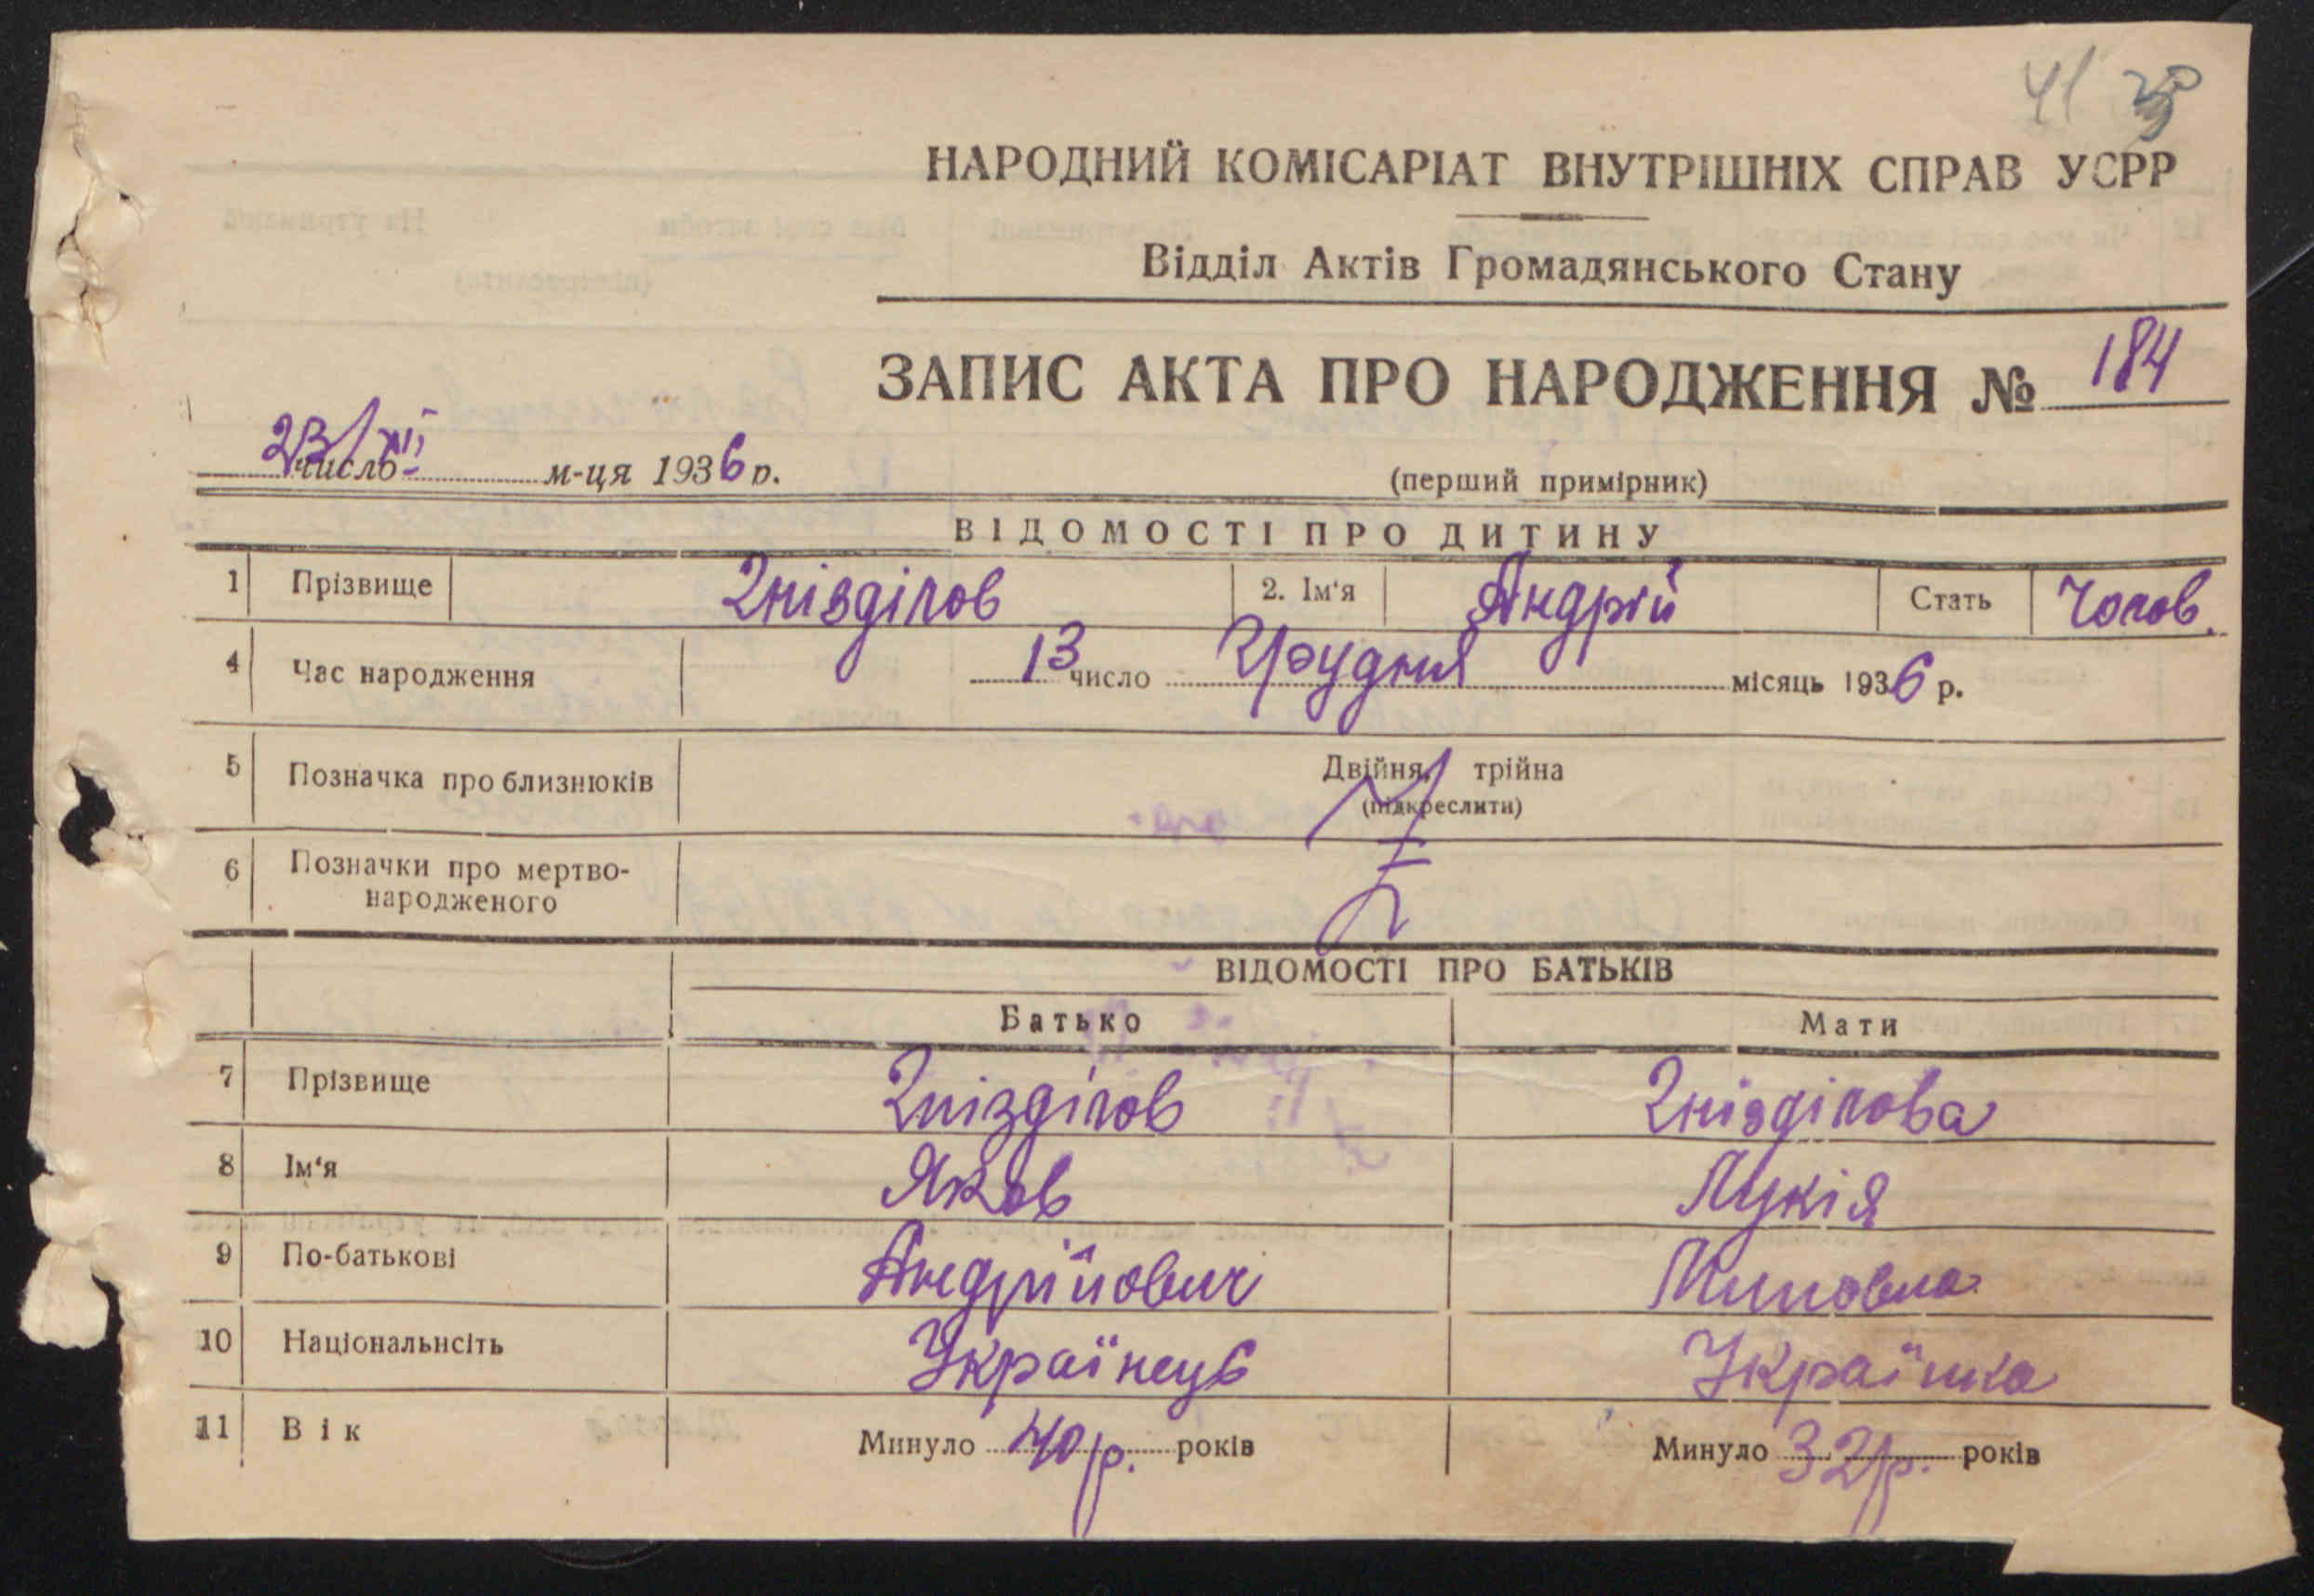 41
НАРОДНИЙ КОМІСАРІАТ ВНУТРІШНІХ СПРАВ УСРР
Відділ Актів Громадянського Стану
ЗАПИС АКТА ПРО НАРОДЖЕННЯ № 184
23/XII число м-ця 1936 р.
(перший примірник)
ВІДОМОСТІ ПРО ДИТИНУ
1 Прізвище Гнізділов 2. Ім'я Андрій Стать Чолов.
4 Час народження 13 число Грудня місяць 1936 р.
5 Позначка про близнюків Двійня, трійна
(підкреслити)
6 Позначки про мертво-
народженого
ВІДОМОСТІ ПРО БАТЬКІВ
Батько Мати
7 Прізвище Гнізділов Гнізділова
8 Ім'я Яков Лукія
9 По-батькові Андрійович
10 Національнсіть Українець Українка
11 Вік Минуло 40 р. років Минуло 32 р. років